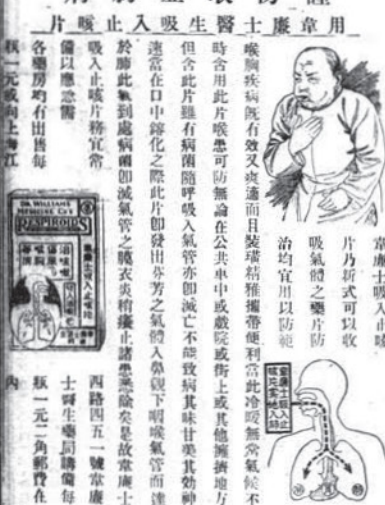 用韋廉士醫生吸入止咳片
韋廉士吸入止咳
片乃新式可以收
吸氣體之藥片防
治均宜用以防範
喉胸疾病既有效又爽適而且裝璜精雅攜帶便利當此冷暖無常氣候不
時含用此片喉患可防無論在公共車中或戲院或街上或其他擁擠地方
但含此片雖有病菌隨呼吸入氣管亦即滅亡不能致病其味甘美其效神
速當在口中鎔化之際此片即發出芬芳之氣體入鼻觀下咽喉氣管而達
於肺此氣到處病菌即滅氣管之膜衣炎稍癢止諸患悉除矣是故韋廉士
吸入止咳片務宜常
備以應急需
各藥房均有出售每
瓶一元或向上海江
西路四五一號韋廉
士醫生藥局購備每
瓶一元二角郵費在
內
DR. WILLIAMS
MEDICINE CO'S
RESPIROIDS